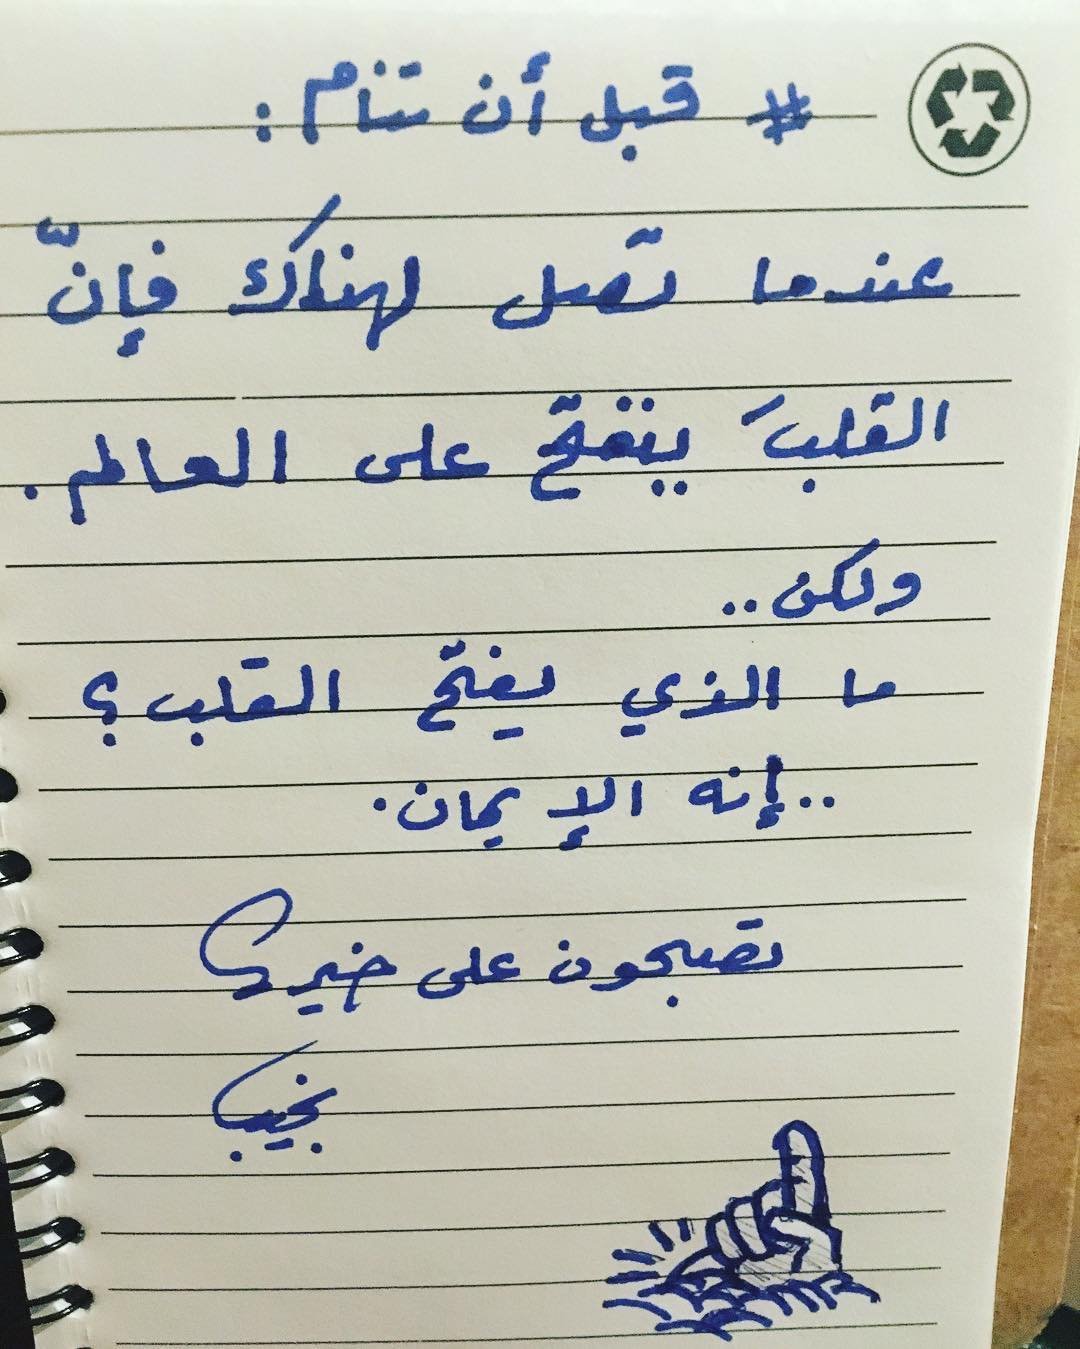 # قبل أن تنام :
عندما تصل لهناك فإنّ
القلبَ ينفتح على العالم .
ولكن ..
ما الذي يفتح القلب ؟
.. إنه الإيمان .
تصبحون على خير
نجيب